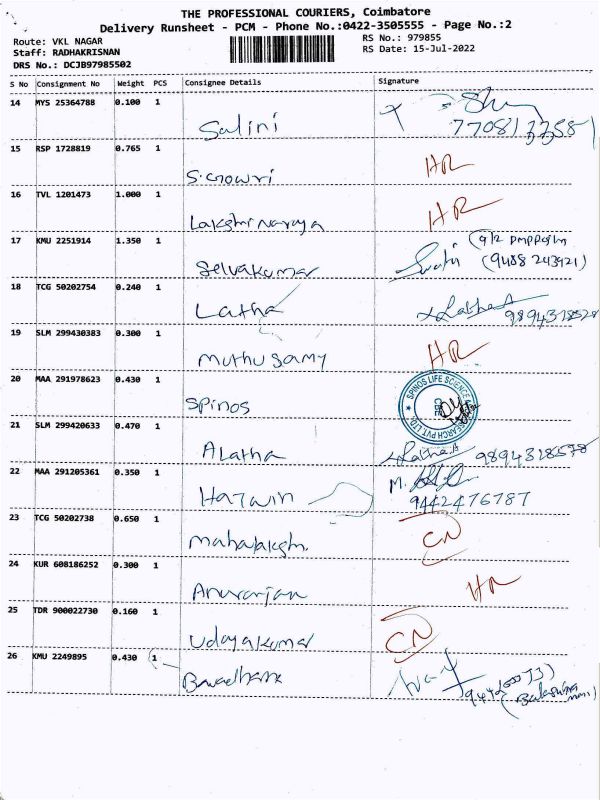 THE PROFESSIONAL COURIERS, Coimbatore
Delivery Runsheet - PCM - Phone No.:0422-3505555 - Page No.:2
Route: VKL NAGAR
RS No.: 979855
Staff: RADHAKRISNAN
RS Date: 15-Jul-2022
DRS No.: DCJB97985502
S No Consignment No Weight PCS Consignee Details Signature
14 MYS 25364788 0.100 1
Salini 7708133581
15 RSP 1728819 0.765 1
S. Gowri HR
16 TVL 1201473 1.000 1
Lakshmi naraya HR
17 KMU 2251914 1.350 1
Selvakumar (9488 243921)
18 TCG 50202754 0.240 1
Latha Latha A 9894318528
19 SLM 299430383 0.300 1
Muthu Samy HR
20 MAA 291978623 0.430 1
Spinos SPINOS LIFE SCIENCE
21 SLM 299420633 0.470 1
A Latha Latha A 9894328578
22 MAA 291205361 0.350 1
Harwin M. 9442476787
23 TCG 50202738 0.650 1
mahalakshm. CN
24 KUR 608186252 0.300 1
Anuranjan HR
25 TDR 900022730 0.160 1
Udayakumar CN
26 KMU 2249895 0.430 1